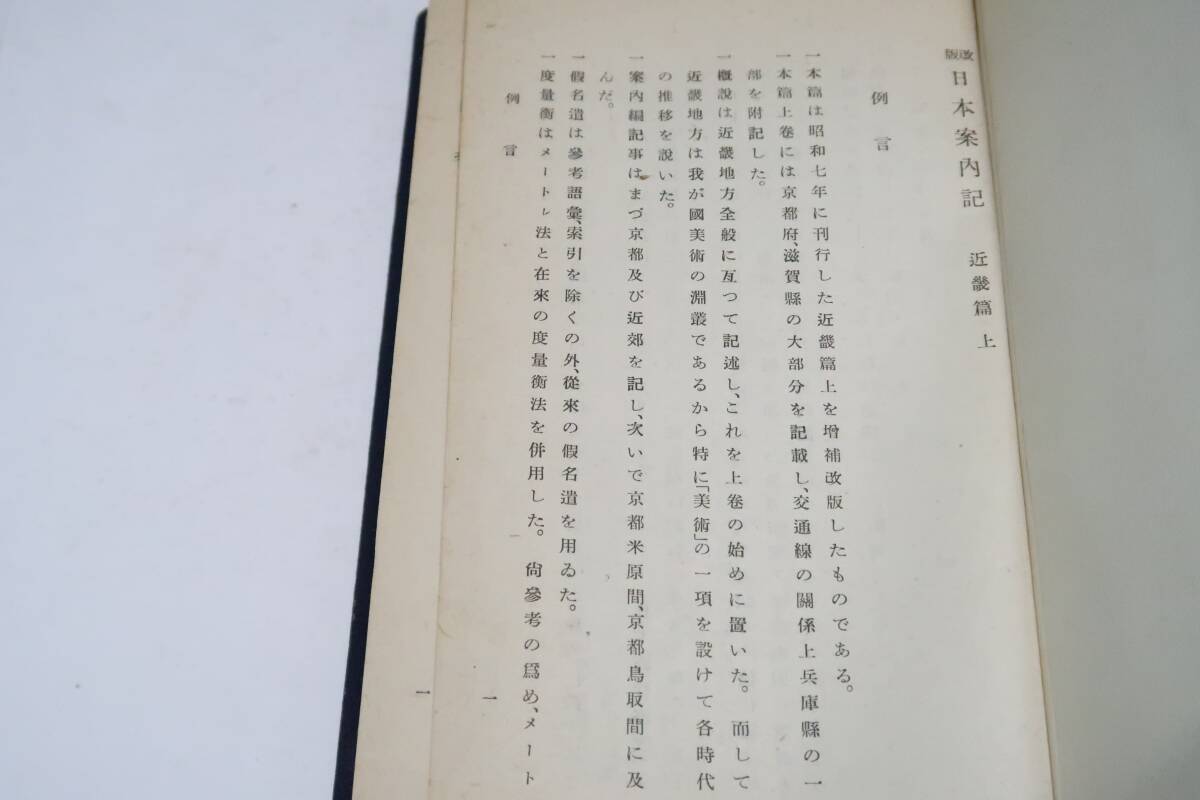 改版 日本案内記 近畿篇 上
例言
一本篇は昭和七年に刊行した近畿篇上を增補改版したものである。
一本篇上卷には京都府、滋賀縣の大部分を記載し、交通線の關係上兵庫縣の一
部を附記した。
一槪說は近畿地方全般に亙つて記述し、これを上卷の始めに置いた。而して
近畿地方は我が國美術の淵叢であるから特に「美術」の一項を設けて各時代
の推移を說いた。
一案內編記事はまづ京都及び近郊を記し、次いで京都米原間、京都鳥取間に及
んだ。
一假名遣は參考語彙、索引を除くの外、從來の假名遣を用ゐた。
一度量衡はメートル法と在來の度量衡法を併用した。尙參考の爲め、メート
例言
一
一